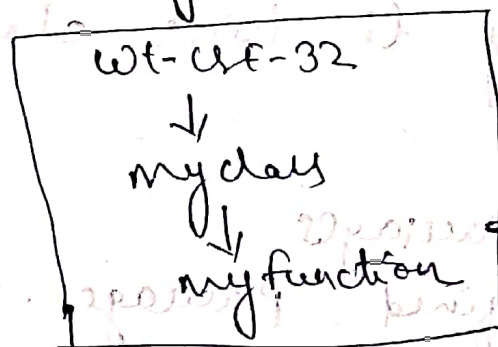 Wt-CSE-32
↓
myclass
↓
myfunction